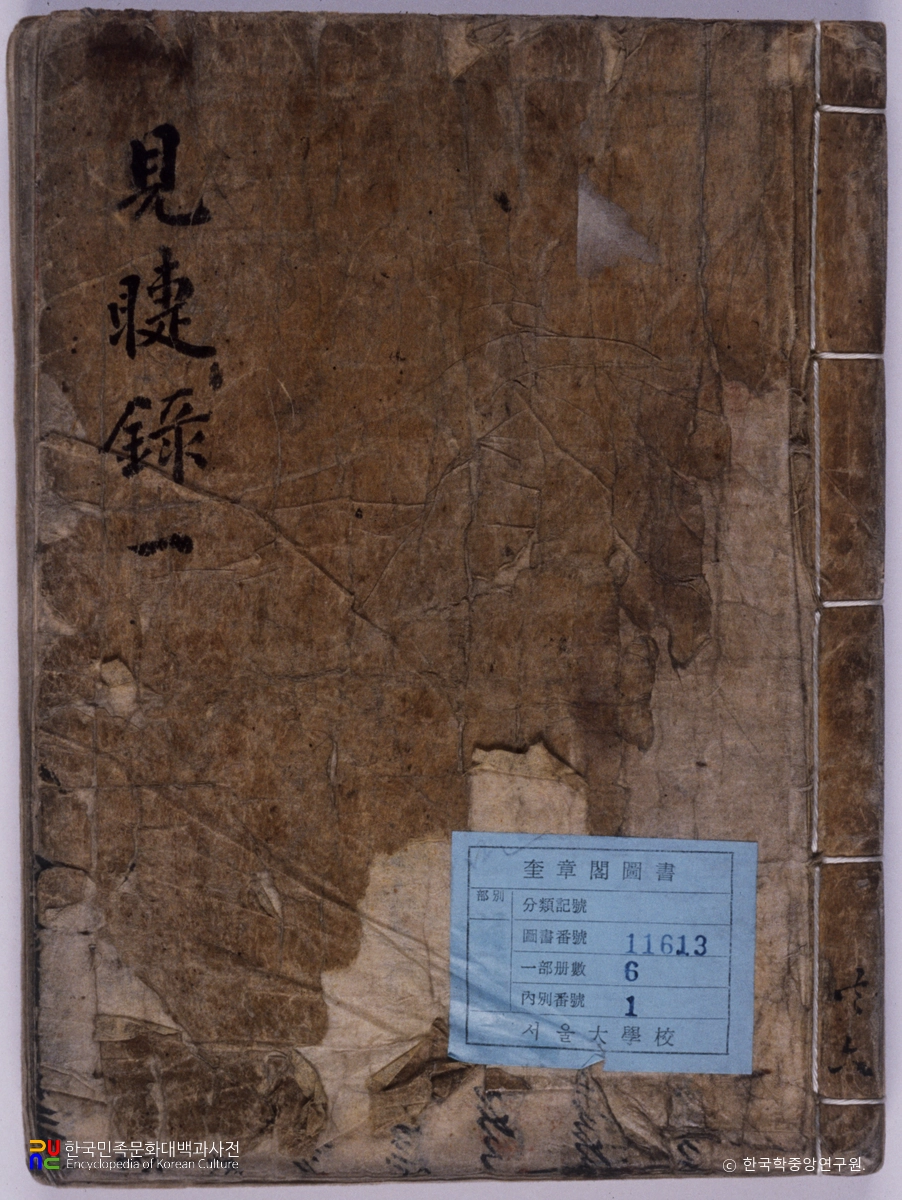 見睫錄 一
奎章閣圖書
部別
分類記號
圖書番號 11613
一部册數 6
內別番號 1
서울大學校
共六
한국민족문화대백과사전
Encyclopedia of Korean Culture
© 한국학중앙연구원